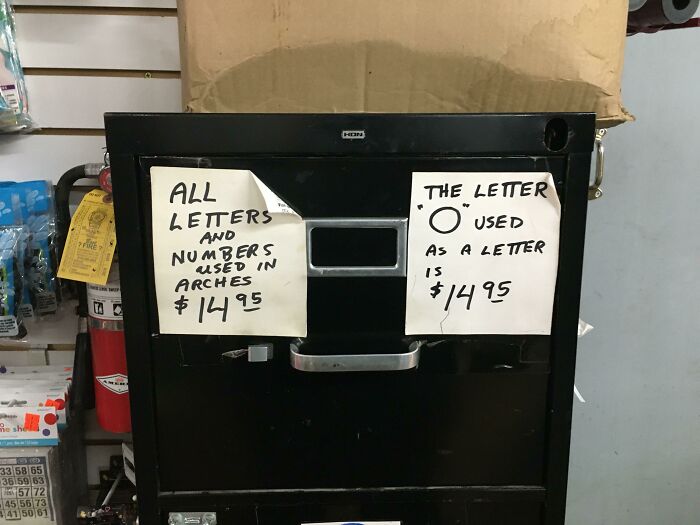 HON
ALL
LETTERS
AND
NUMBERS
USED IN
ARCHES
$14.95
THE LETTER
"O" USED
AS A LETTER
IS
$14.95
33 58 65
36 59 63
57 72
45 56 73
41 50 61